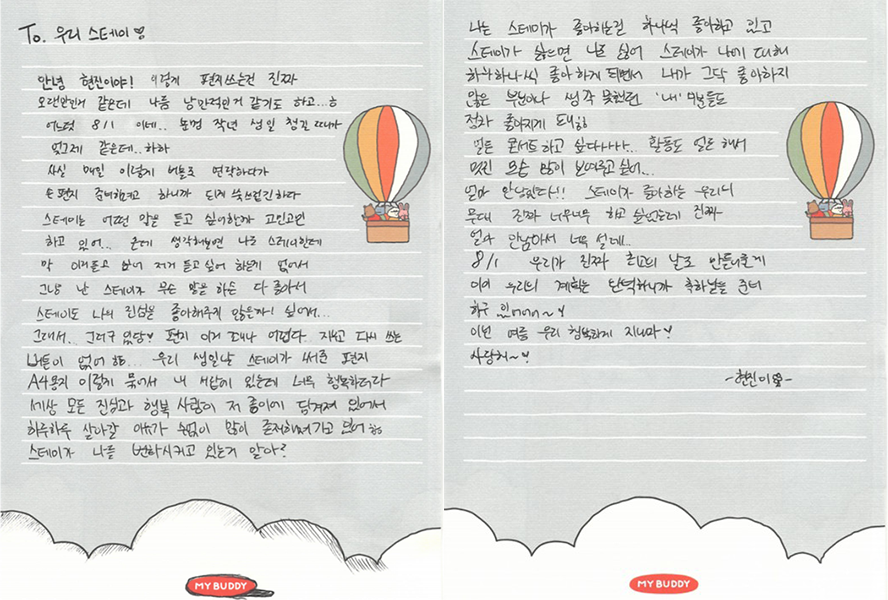 To. 우리 스테이♡
안녕 현진이야! 이렇게 편지쓰는건 진짜
오랜만인거 같은데 나름 낭만적인거 같기도 하고...ㅎ
어느덧 8/1 이네.. 분명 작년 생일 챙긴
엊그제 같은데.. 하하
사실 매일 이렇게 버블로 연락하다가
손편지 준비하려고 하니까 되게 쑥쓰럽긴하다
스테이는 어떤 말을 듣고 싶어할까 고민고민
하고 있어.. 근데 생각해보면 나도 스테이한테
막 이거듣고 싶어 저거 듣고싶어 하는게 없어서
그냥 난 스테이가 무슨 말을 하든 다 좋아서
스테이도 나의 진심을 좋아해주지 않을까! 싶어서...
그래서.. 그러구 있담♥ 편지 이거 꽤나 어렵다 지우고 다시 쓰는
버튼이 없어 ㅎㅎ... 우리 생일날 스테이가 써준 편지
A4용지 이렇게 묶어서 내 서랍에 있는데 너무 행복하더라
세상 모든 진심과 행복 사랑이 저 종이에 담겨져 있어서
하루하루 살아갈 이유가 수없이 많이 존재해져가고 있어 ㅎㅎ
스테이가 나를 변하시키고 있는거 알아?
MY BUDDY
나는 스테이가 좋아하는건 하나씩 좋아하고 있고
스테이가 싫으면 나도 싫어 스테이가 나에 대해
하나하나씩 좋아하게 되면서 내가 그닥 좋아하지
않은 부분이나 생각 못했던 '내' 면들도
점차 좋아지게 돼 ㅎㅎ
얼른 콘서트하고 싶다아아.. 활동도 얼른 해서
멋진 모습 많이 보여주고싶어...
얼마 안남았다!! 스테이가 좋아하는 우리니
무대 진짜 너무너무 하고 싶었는데 진짜
얼마 안남아서 너무 설레..
8/1 우리가 진짜 최고의 날로 만들어줄게
이미 우리의 계획는 완벽하니까 축하받을 준비
하구 있어어어~♥
이번 여름 우리 행복하게 지내자♥
사랑해~♥
-현진이-
MY BUDDY